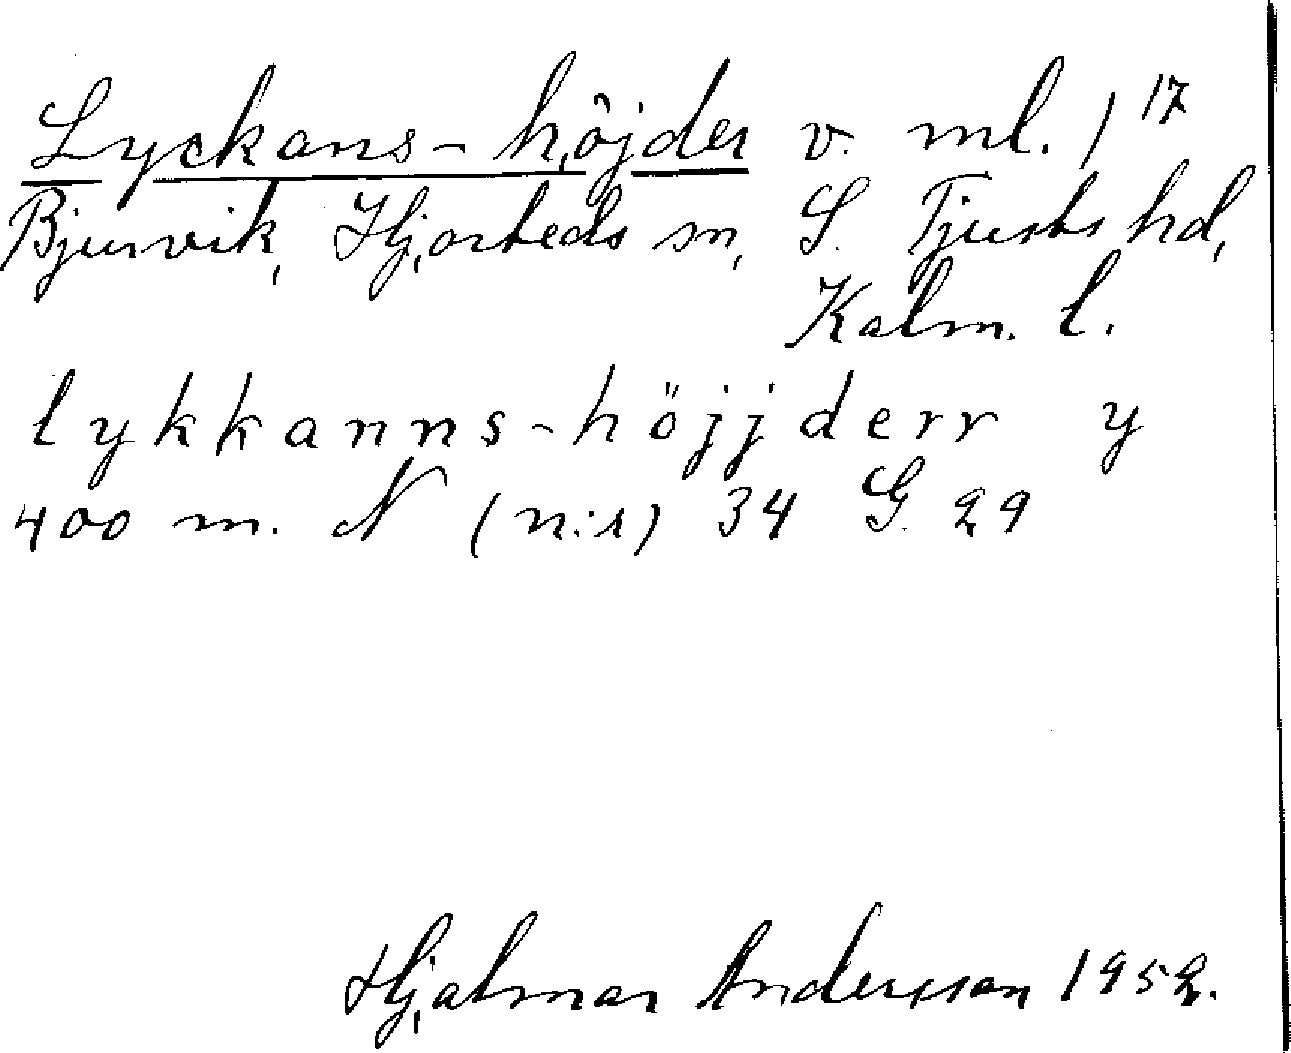 Lyckans-höjder v. ml. 1 17
Bjurvik, Hjorteds sn, S. Tjusts hd,
Kalm. l.
lykkanns-höjjderr y
400 m. N (n:r) 34 G. 29
Hjalmar Andersson 1952.